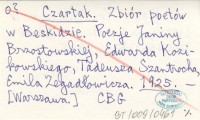 03 Czartak. Zbiór poetów
w Beskidzie. Poezje Janiny
Brzostowskiej, Edwarda Kozi-
kowskiego, Tadeusza Szantrocha,
Emila Zegadłowicza. 1925. –
[Warszawa.] CBG
ST/009/0461